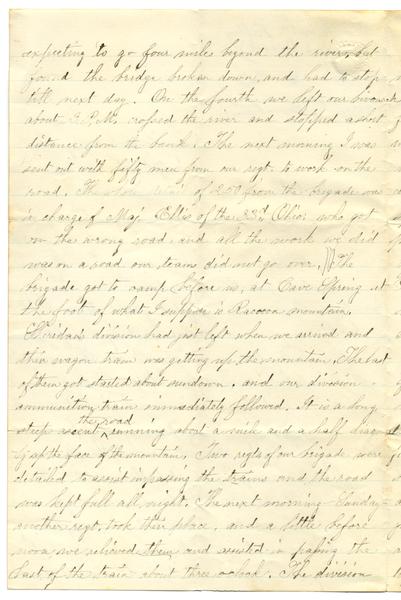 expecting to go four miles beyond the river, but
found the bridge broken down, and had to stop
till next day. On the fourth we left our bivouack
about 3. P.M. crossed the river and stopped a short
distance from the bank. The next morning I was
sent out with fifty men from our regt. to work on the
road. The whole of 200 from the brigade was
in charge of Maj Ellis of the 33d, Ohio; who got
on the wrong road, and all the work we did
was on a road our teams did not go over. The
brigade got to camp before us, at Cave Spring at
the foot of what I suppose is Racoon mountain.
Sheridan's division had just left when we arrived and
their wagon train was getting up the mountain. The last
of them got started about sundown. and our division
ammunition train immediately followed. It is a long
steep ascent, the road running about a mile and a half diag
up the face of the mountain. Two regts of our brigade were
detailed to assist in passing the trains and the road
was kept full all night. The next morning - Sunday -
another regt. took their place, and a little before
noon, we relieved them and assisted in passing the
last of the train about three o clock. The division